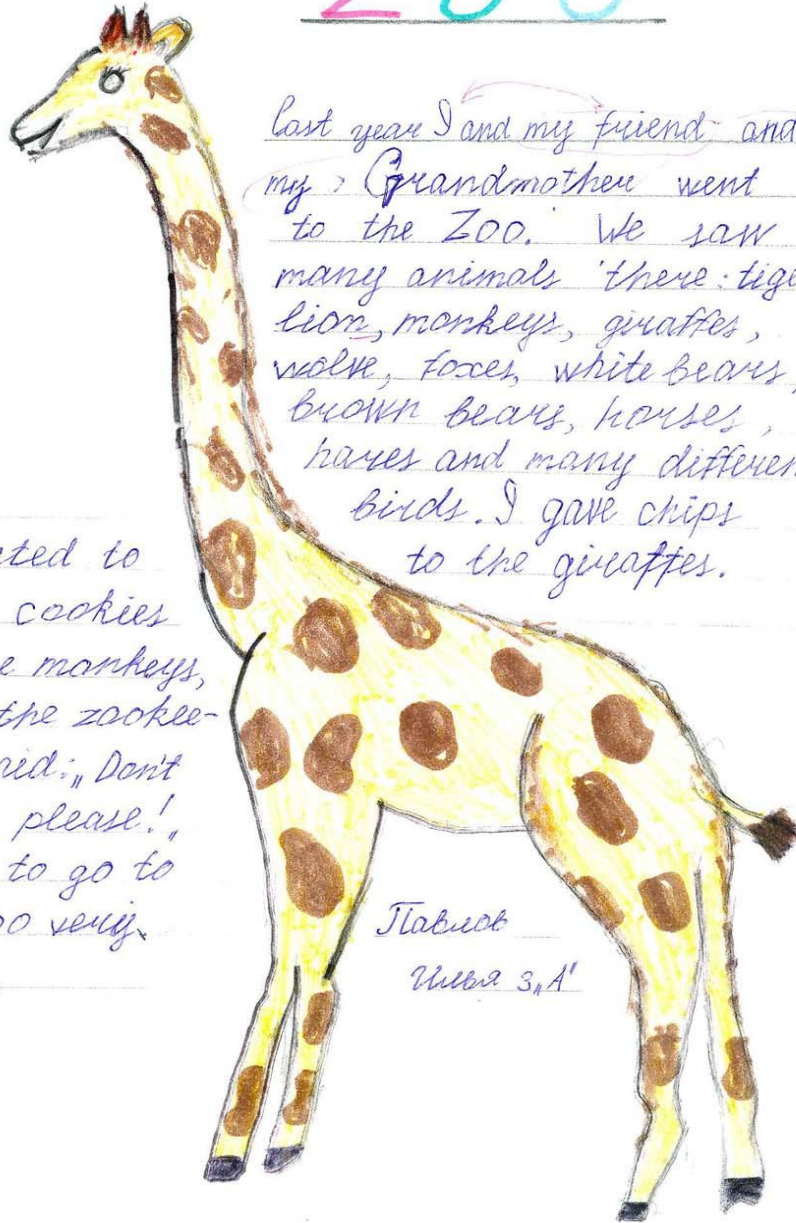 ZOO
last year I and my friend and
my Grandmother went
to the Zoo. We saw
many animals there: tige
lion, monkeys, giraffes,
wolve, foxes, white bears,
brown bears, horses,
hares and many differen
birds. I gave chips
to the giraffes.
ted to
cookies
e monkeys,
the zookee-
aid: „Don't
please!„
to go to
oo very.
Павлов
Илья 3„А"